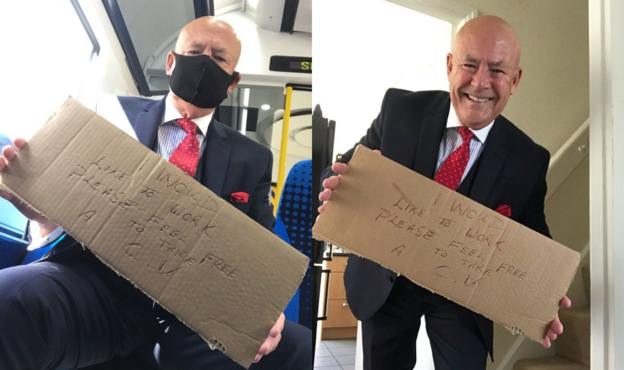 I WOULD
LIKE TO WORK
PLEASE FEEL FREE
TO TAKE
A C.V
I WOULD
LIKE TO WORK
PLEASE FEEL FREE
TO TAKE
A C.V